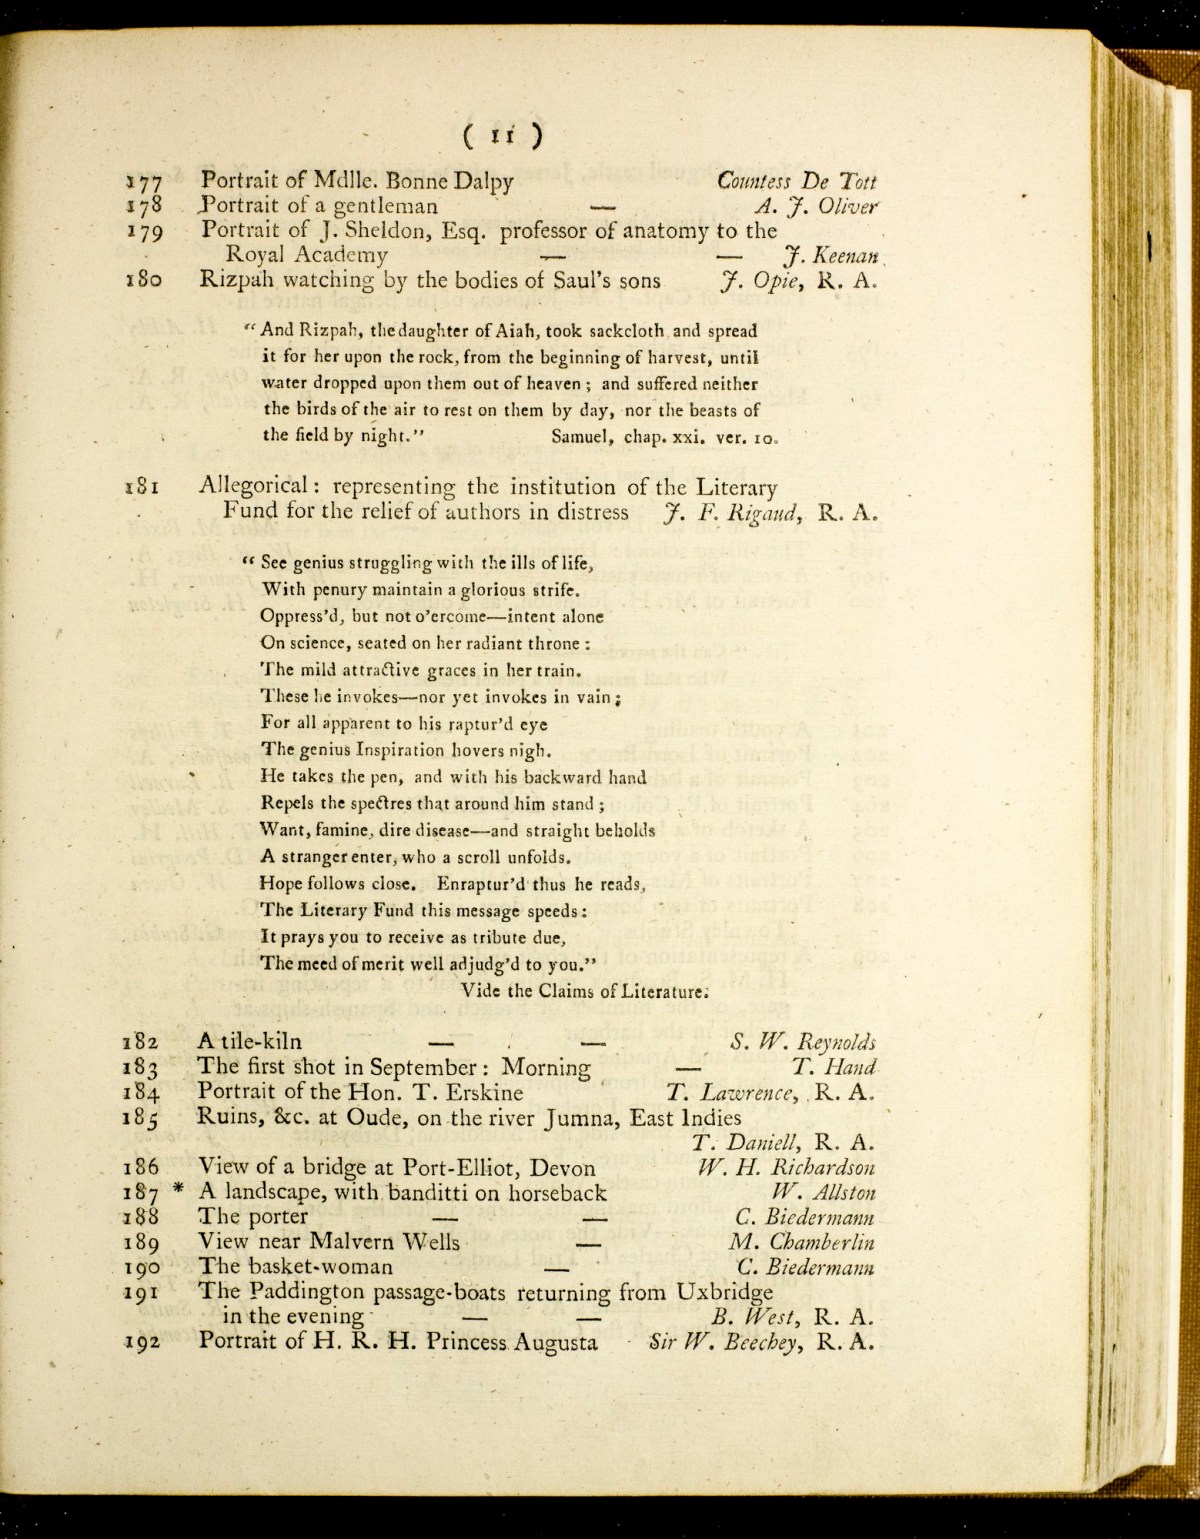 ( 11 )
177 Portrait of Mdlle. Bonne Dalpy Countess De Tott
178 Portrait of a gentleman — A. J. Oliver
179 Portrait of J. Sheldon, Esq. professor of anatomy to the
Royal Academy — — J. Keenan
180 Rizpah watching by the bodies of Saul's sons J. Opie, R. A.
“ And Rizpah, the daughter of Aiah, took sackcloth and spread
it for her upon the rock, from the beginning of harvest, until
water dropped upon them out of heaven ; and suffered neither
the birds of the air to rest on them by day, nor the beasts of
the field by night.” Samuel, chap. xxi. ver. 10.
181 Allegorical : representing the institution of the Literary
Fund for the relief of authors in distress J. F. Rigaud, R. A.
“ See genius struggling with the ills of life,
With penury maintain a glorious strife.
Oppress'd, but not o'ercome—intent alone
On science, seated on her radiant throne :
The mild attractive graces in her train.
These he invokes—nor yet invokes in vain ;
For all apparent to his raptur'd eye
The genius Inspiration hovers nigh.
He takes the pen, and with his backward hand
Repels the spectres that around him stand ;
Want, famine, dire disease—and straight beholds
A stranger enter, who a scroll unfolds.
Hope follows close. Enraptur'd thus he reads,
The Literary Fund this message speeds :
It prays you to receive as tribute due,
The meed of merit well adjudg'd to you.”
Vide the Claims of Literature.
182 A tile-kiln — — S. W. Reynolds
183 The first shot in September : Morning — T. Hand
184 Portrait of the Hon. T. Erskine T. Lawrence, R. A.
185 Ruins, &c. at Oude, on the river Jumna, East Indies
T. Daniell, R. A.
186 View of a bridge at Port-Elliot, Devon W. H. Richardson
187 * A landscape, with banditti on horseback W. Allston
188 The porter — — C. Biedermann
189 View near Malvern Wells — M. Chamberlin
190 The basket-woman — C. Biedermann
191 The Paddington passage-boats returning from Uxbridge
in the evening — — B. West, R. A.
192 Portrait of H. R. H. Princess Augusta Sir W. Beechey, R. A.